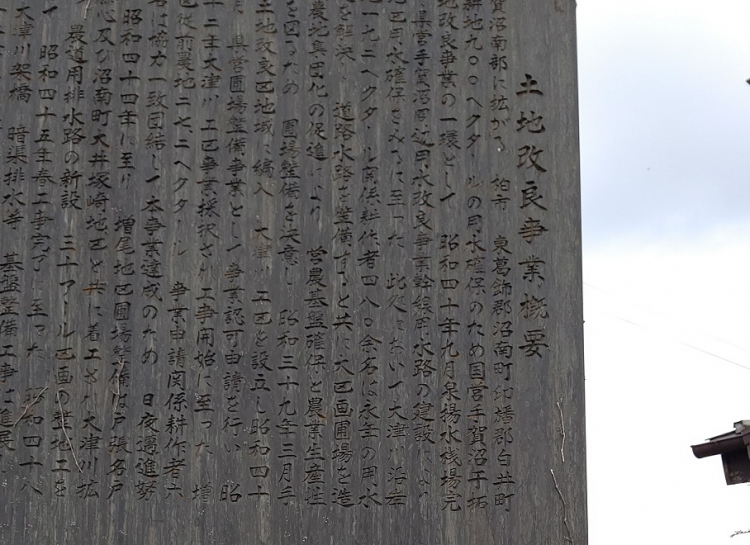 土地改良事業概要
賀沼南部に拡がる 柏市 東葛飾郡沼南町印旛郡白井町
耕地九〇〇ヘクタールの用水確保のため国営手賀沼干拓
地改良事業の一環として 昭和四十年九月泉揚水機場完
県営手賀沼周辺用水改良事業幹線用水路の建設により
地区用水確保をみるに至った 此処において大津川沿岸
地一九二ヘクタール関係耕作者四八〇余名は永年の用水
を解決し 道路水路を整備すると共に大区画圃場を造
農地集団化の促進により 営農基盤確保と農業生産性
を図るため 圃場整備を決意し 昭和三十九年三月手
土地改良区地域に編入 大津川工区を設立し昭和四十
県営圃場整備事業として事業認可申請を行い 昭
十二年大津川工区事業採択され工事開始に至った 増
区従前農地二七、二ヘクタール 事業申請関係耕作者六
名は協力一致団結し本事業達成のため 日夜邁進努
昭和四十四年に至り 増尾地区圃場整備は戸張名戸
心及び沼南町大井塚崎地区と共に着工され大津川拡
農道用排水路の新設 三十アール区画の整地工を
昭和四十五年春工事完了に至った 昭和四十八
大津川架橋 暗渠排水等 基盤整備工事は進展